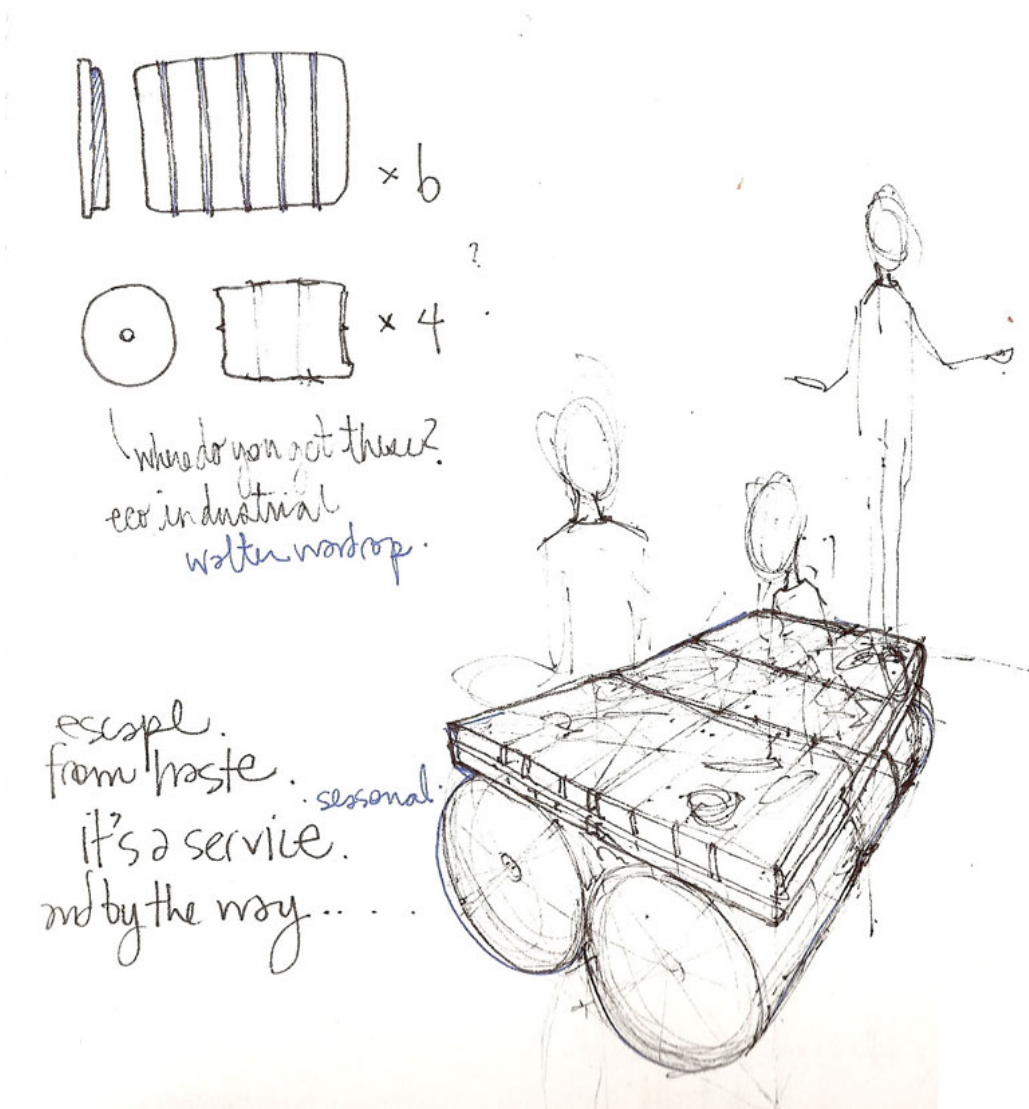 × 6
?
× 4
where do you get these?
eco industrial
walter wardrop.
escape.
from haste.
seasonal.
it's a service.
and by the way.....